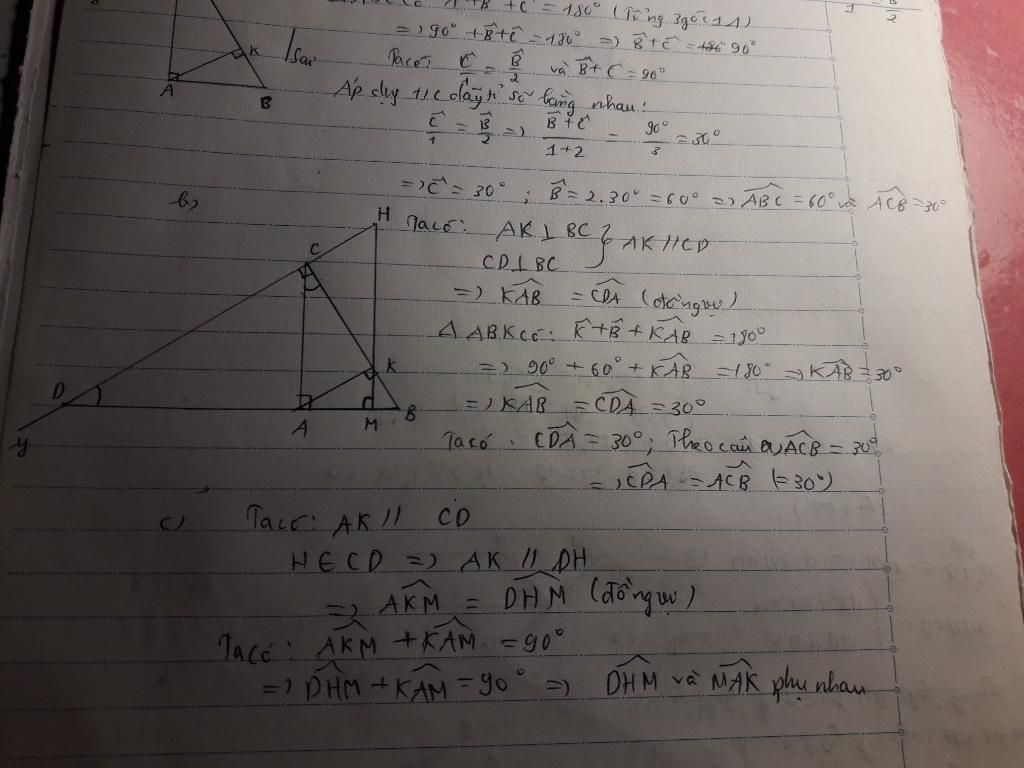 + B̂ + Ĉ = 180° (Tổng 3 góc 1 Δ)
=> 90° + B̂ + Ĉ = 180° => B̂ + Ĉ = 90°
Ta có: Ĉ/1 = B̂/2 và B̂ + C = 90°
Áp dụng t/c dãy tỉ số bằng nhau:
Ĉ/1 = B̂/2 => B̂ + Ĉ / 1+2 = 90°/3 = 30°
=> Ĉ = 30° ; B̂ = 2.30° = 60° => ABC = 60° và ACB = 30°
A
B
K
b)
H
C
D
K
y
A
M
B
Ta có: AK ⊥ BC
CD ⊥ BC
} AK // CD
=> KAB = CDA (đồng vị)
Δ ABK có: K̂ + B̂ + KAB = 180°
=> 90° + 60° + KAB = 180° => KAB = 30°
=> KAB = CDA = 30°
Ta có: CDA = 30°; Theo câu a, ACB = 30°
=> CDA = ACB (=30°)
c) Ta có: AK // CD
H ∈ CD => AK // DH
=> AKM = DHM (đồng vị)
Ta có: AKM + KAM = 90°
=> DHM + KAM = 90° => DHM và MAK phụ nhau